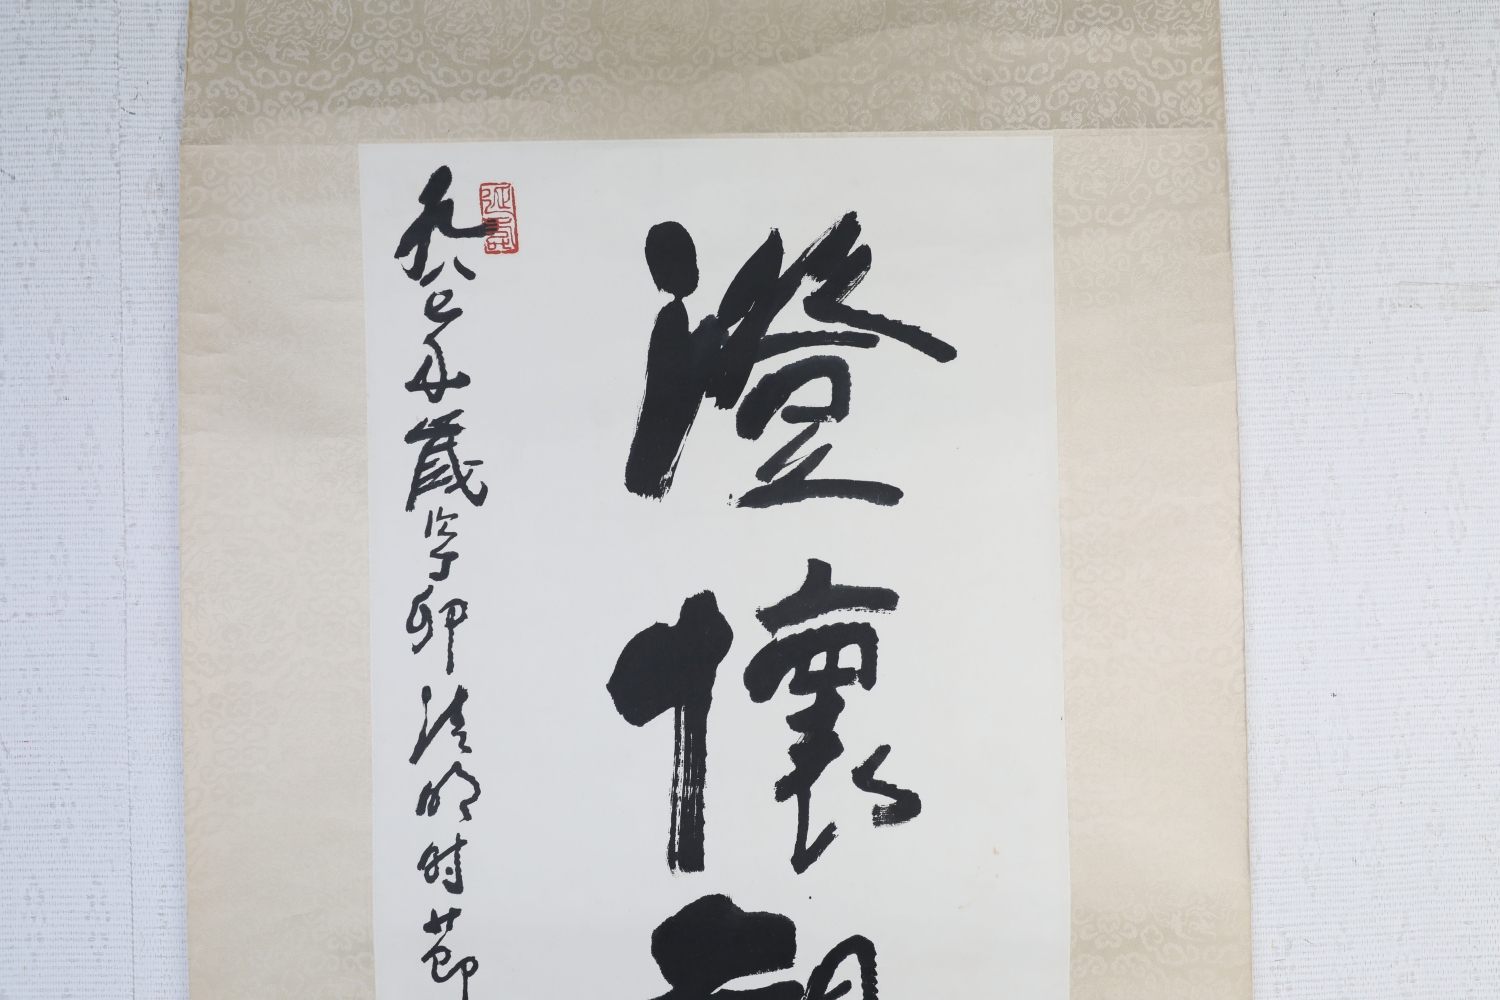 澄懷
九八七年歲次丁卯清明时節